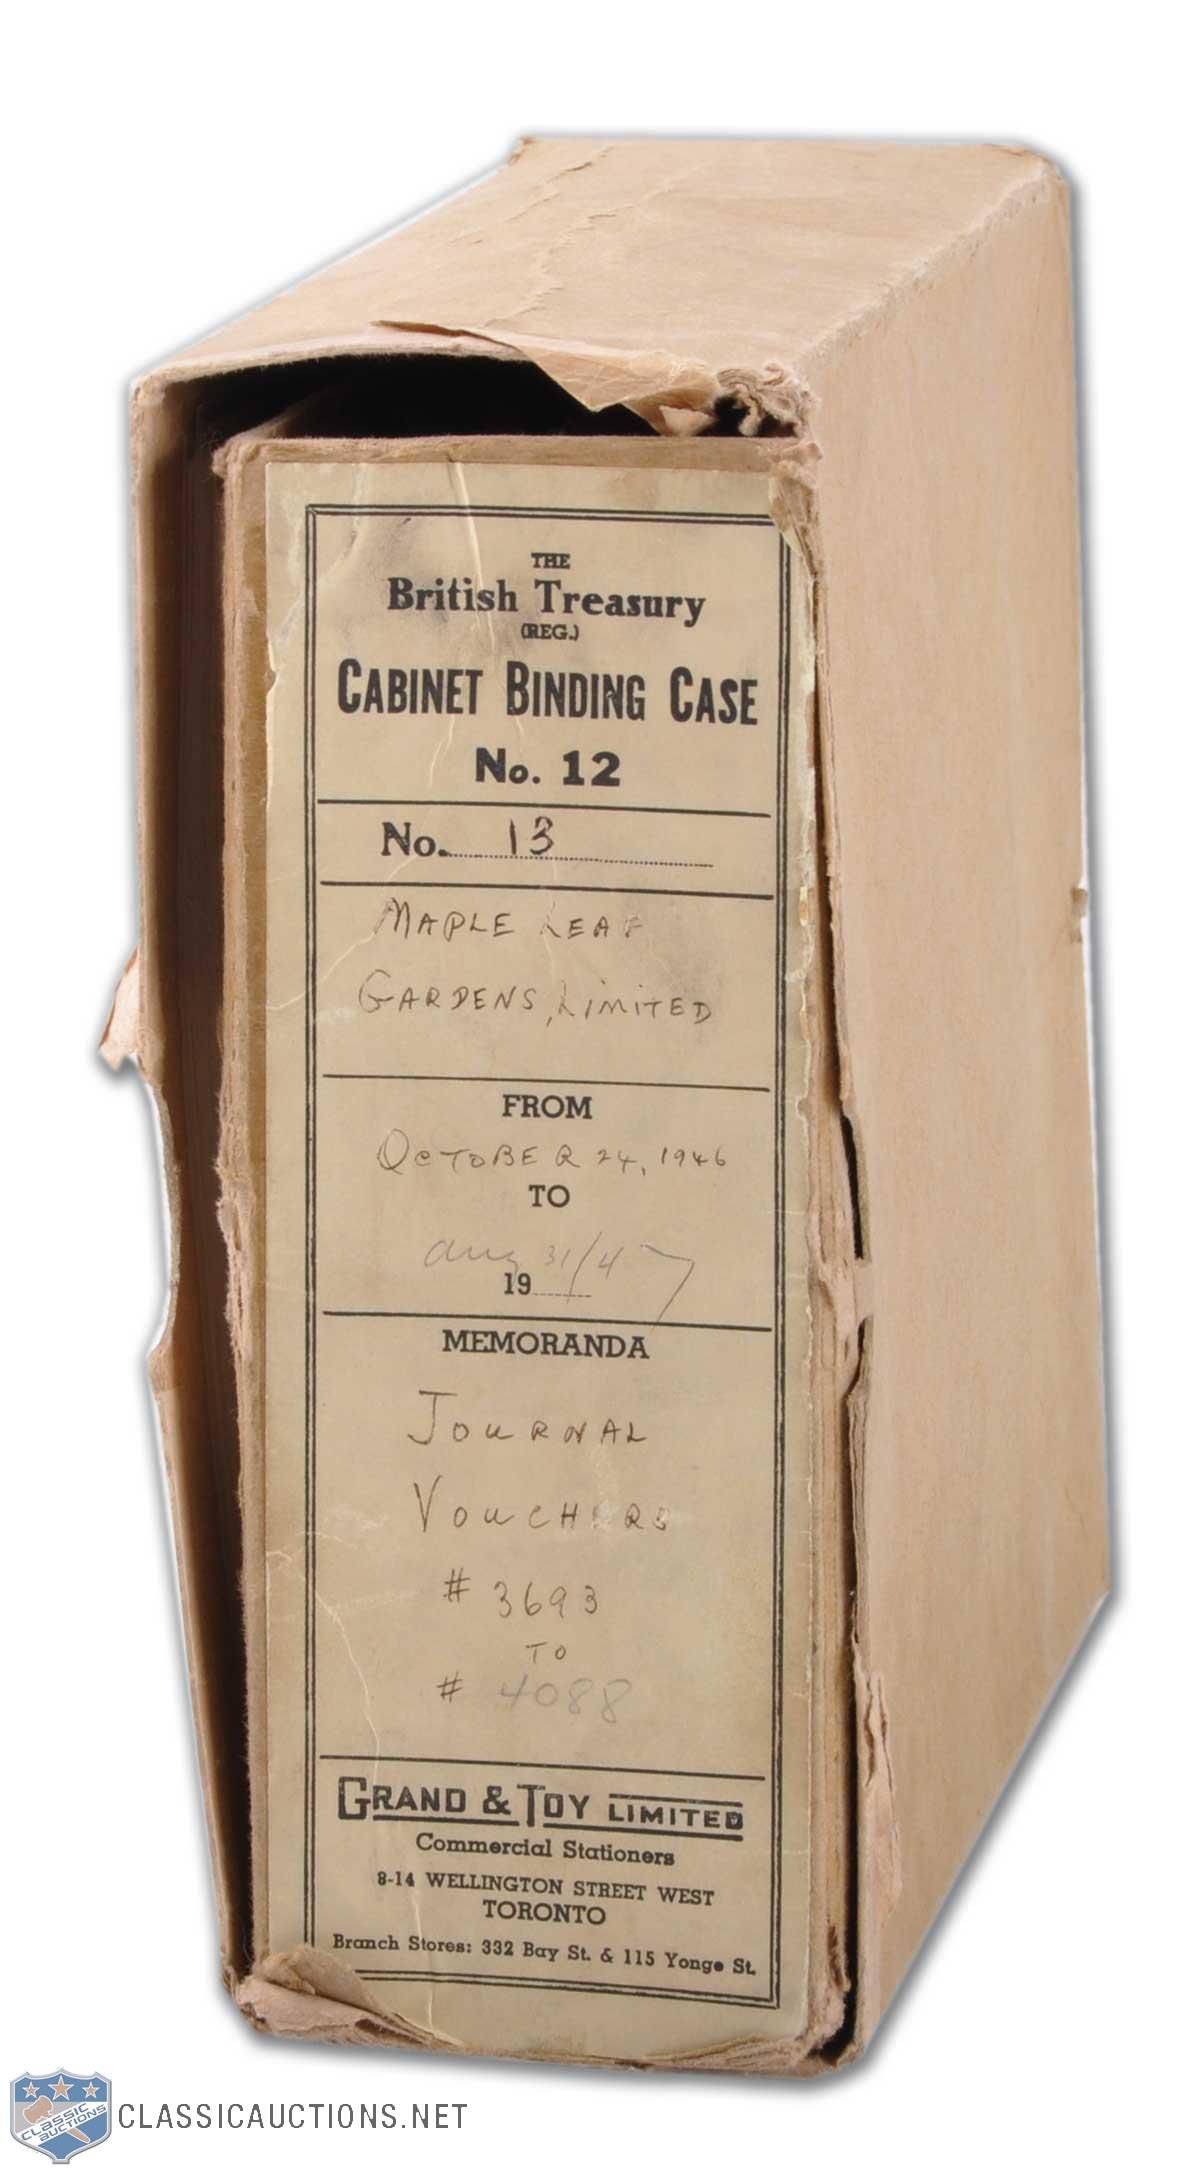 THE
British Treasury
(REG.)
CABINET BINDING CASE
No. 12
No. 13
MAPLE LEAF
GARDENS, LIMITED
FROM
OCTOBER 24, 1946
TO
Aug 31/47
19
MEMORANDA
JOURNAL
VOUCHERS
# 3693
TO
# 4088
GRAND & TOY LIMITED
Commercial Stationers
8-14 WELLINGTON STREET WEST
TORONTO
Branch Stores: 332 Bay St. & 115 Yonge St.
CLASSIC
AUCTIONS
CLASSICAUCTIONS.NET